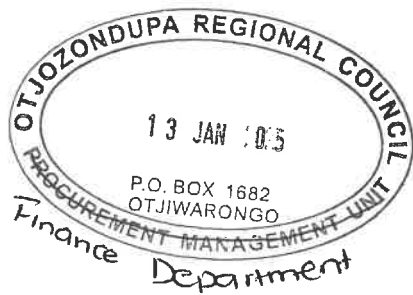 OTJOZONDUPA REGIONAL COUNCIL
13 JAN
P.O. BOX 1682
OTJIWARONGO
PROCUREMENT MANAGEMENT UNIT
Finance Department